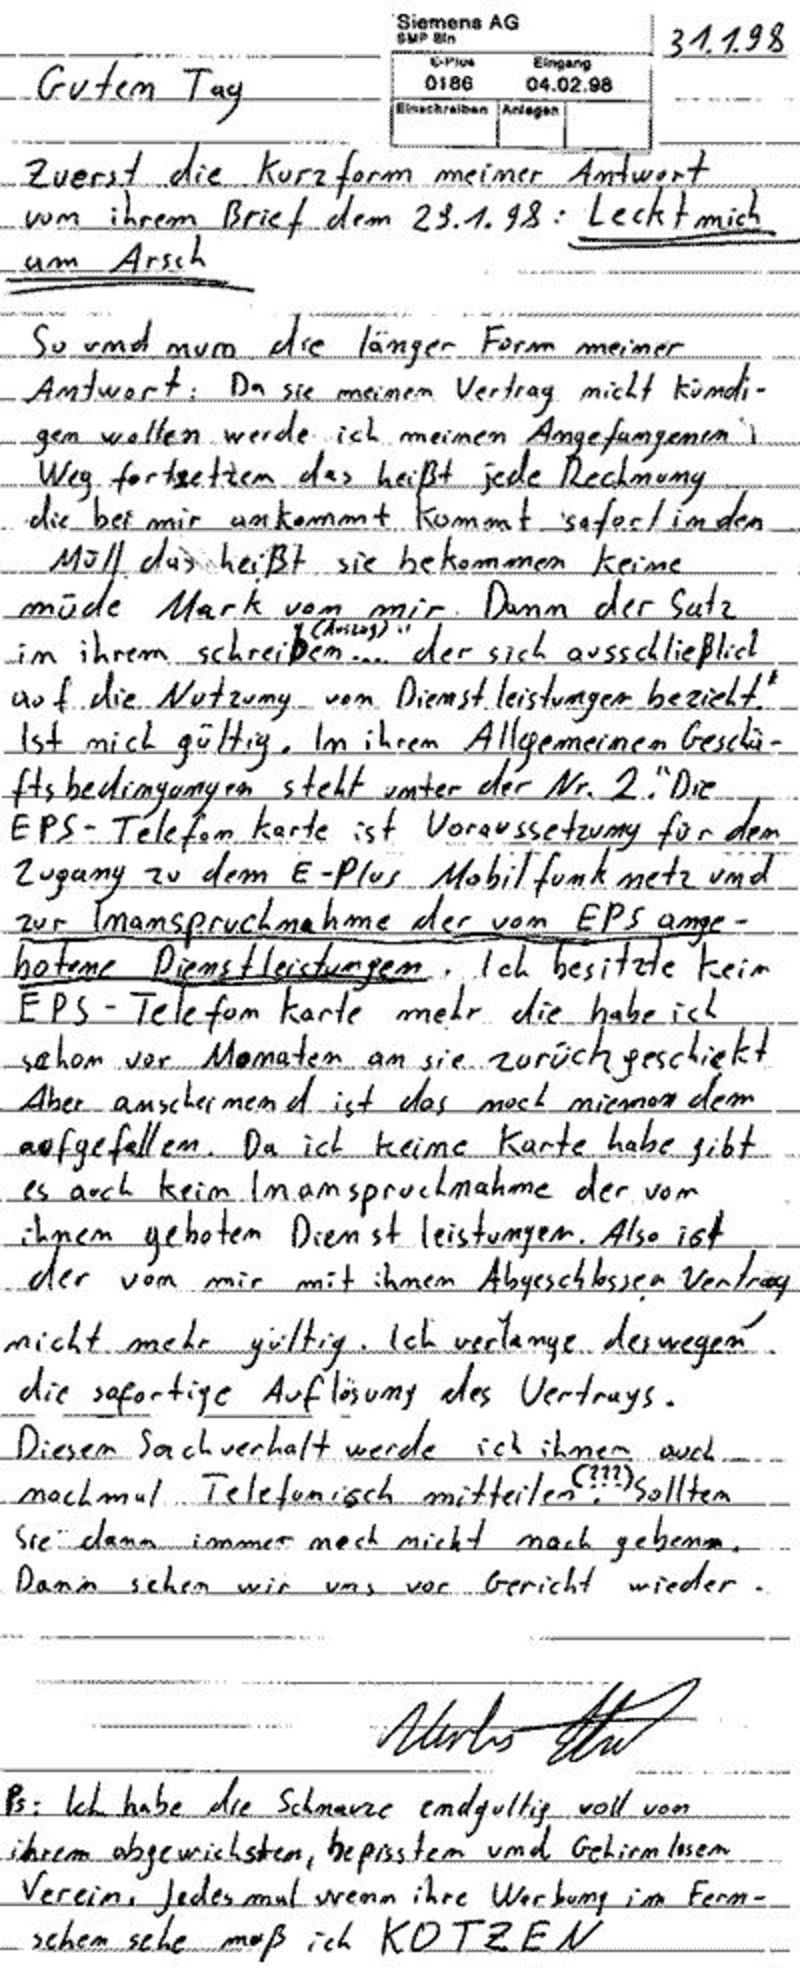 Siemens AG
SMP Bln
31.1.98
E-Plus Eingang
0186 04.02.98
Einschreiben Anlagen
Guten Tag
Zuerst die Kurzform meiner Antwort
vom ihrem Brief dem 29.1.98: Leckt mich
am Arsch
So und nun die länger Form meiner
Antwort: Da sie meinen Vertrag nicht kündi-
gen wollen werde ich meinen Angefangenen
Weg fortsetzen das heißt jede Rechnung
die bei mir ankommt kommt sofort in den
Müll das heißt sie bekommen keine
müde Mark von mir. Dann der Satz
(Auszug) "
in ihrem schreiben.... der sich ausschließlich
auf die Nutzung von Dienstleistungen bezieht."
Ist nich gültig. In ihrem Allgemeinen Geschä-
ftsbedingungen steht unter der Nr. 2. "Die
EPS-Telefon karte ist Voraussetzung für den
Zugang zu dem E-Plus Mobilfunk netz und
zur Inanspruchnahme der von EPS ange-
botene Dienstleistungen. Ich besitzte kein
EPS-Telefon karte mehr die habe ich
schon vor Monaten an sie zurückgeschickt
Aber anscheinend ist das noch niemandem
aufgefallen. Da ich keine Karte habe gibt
es auch kein Inanspruchnahme der von
ihnen geboten Dienst leistungen. Also ist
der von mir mit ihnen Abgeschlossen Vertrag
nicht mehr gültig. Ich verlange deswegen
die sofortige Auflösung des Vertrags.
Diesen Sachverhalt werde ich ihnen auch
nochmal Telefonisch mitteilen (???). Sollten
Sie dann immer noch nicht nach gebenn.
Dann sehen wir uns vor Gericht wieder.
Ps: Ich habe die Schnauze endgultig voll von
ihrem abgewichsten, bepissten und Gehirnlosen
Verein. Jedes mal wenn ihre Werbung im Fern-
sehen sehe muß ich KOTZEN